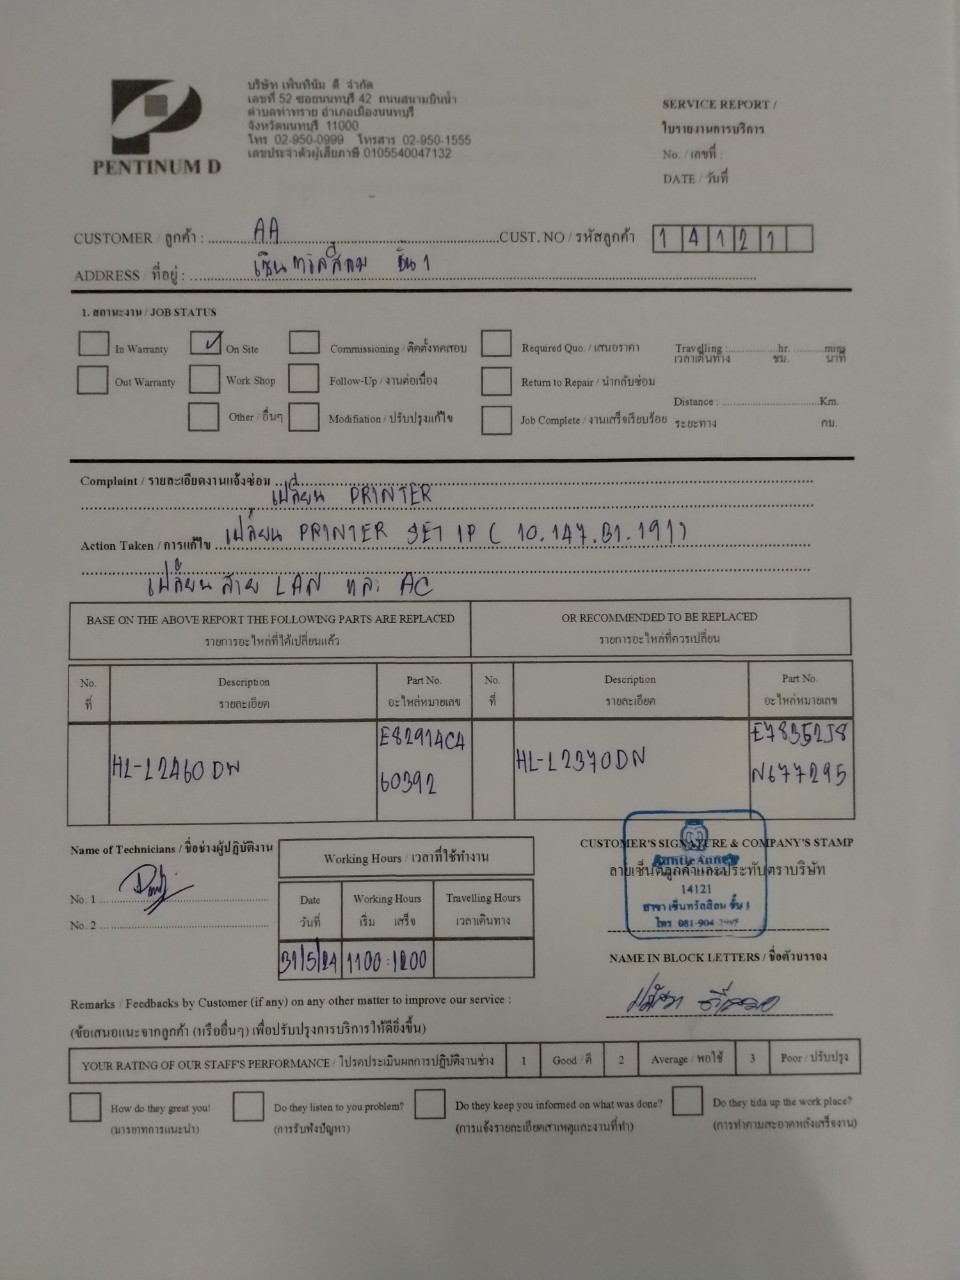 บริษัท เพ็นทินัม ดี จำกัด
เลขที่ 52 ซอยนนทบุรี 42 ถนนสนามบินน้ำ
ตำบลท่าทราย อำเภอเมืองนนทบุรี
จังหวัดนนทบุรี 11000
โทร 02-950-0999 โทรสาร 02-950-1555
เลขประจำตัวผู้เสียภาษี 0105540047132
PENTINUM D
SERVICE REPORT /
ใบรายงานการบริการ
No. / เลขที่ :
DATE / วันที่
CUSTOMER / ลูกค้า : AA CUST. NO / รหัสลูกค้า 14121
ADDRESS / ที่อยู่ : ชั้น 1
1. สถานะงาน / JOB STATUS
In Warranty On Site Commissioning / ติดตั้งทดสอบ Required Quo. / เสนอราคา Travelling : hr. mins
เวลาเดินทาง ชม. นาที
Out Warranty Work Shop Follow-Up / งานต่อเนื่อง Return to Repair / นำกลับซ่อม
Distance : Km.
Other / อื่นๆ Modifiation / ปรับปรุงแก้ไข Job Complete / งานเสร็จเรียบร้อย ระยะทาง กม.
Complaint / รายละเอียดงานแจ้งซ่อม
เปลี่ยน PRINTER
Action Taken / การแก้ไข เปลี่ยน PRINTER SET IP ( 10.147.31.191)
เปลี่ยนสาย LAN และ AC
BASE ON THE ABOVE REPORT THE FOLLOWING PARTS ARE REPLACED OR RECOMMENDED TO BE REPLACED
รายการอะไหล่ที่ได้เปลี่ยนแล้ว รายการอะไหล่ที่ควรเปลี่ยน
No. Description Part No. No. Description Part No.
ที่ รายละเอียด อะไหล่หมายเลข ที่ รายละเอียด อะไหล่หมายเลข
HL-L2460DW E82914C4 HL-L2370DN E78352J8
60392 N677295
Name of Technicians / ชื่อช่างผู้ปฏิบัติงาน
No. 1
No. 2
Working Hours / เวลาที่ใช้ทำงาน
Date Working Hours Travelling Hours
วันที่ เริ่ม เสร็จ เวลาเดินทาง
31/5/24 1100:1200
CUSTOMER'S SIGNATURE & COMPANY'S STAMP
ลายเซ็นต์ลูกค้าและประทับตราบริษัท
Auntie Anne's
14121
สาขา เซ็นทรัลสีลม ชั้น 1
โทร 081-904
NAME IN BLOCK LETTERS / ชื่อตัวบรรจง
Remarks / Feedbacks by Customer (if any) on any other matter to improve our service :
(ข้อเสนอแนะจากลูกค้า (หรืออื่นๆ) เพื่อปรับปรุงการบริการให้ดียิ่งขึ้น)
YOUR RATING OF OUR STAFF'S PERFORMANCE / โปรดประเมินผลการปฏิบัติงานช่าง 1 Good / ดี 2 Average / พอใช้ 3 Poor / ปรับปรุง
How do they great you! Do they listen to you problem? Do they keep you informed on what was done? Do they tida up the work place?
(มารยาทการแนะนำ) (การรับฟังปัญหา) (การแจ้งรายละเอียดสาเหตุและงานที่ทำ) (การทำความสะอาดหลังเสร็จงาน)